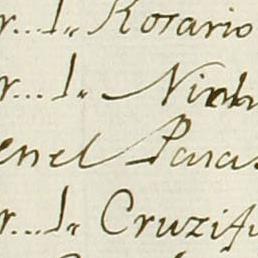 r...1,, Rosario
r...1,, Ninh
enel Paras
r...1,, Cruzifi